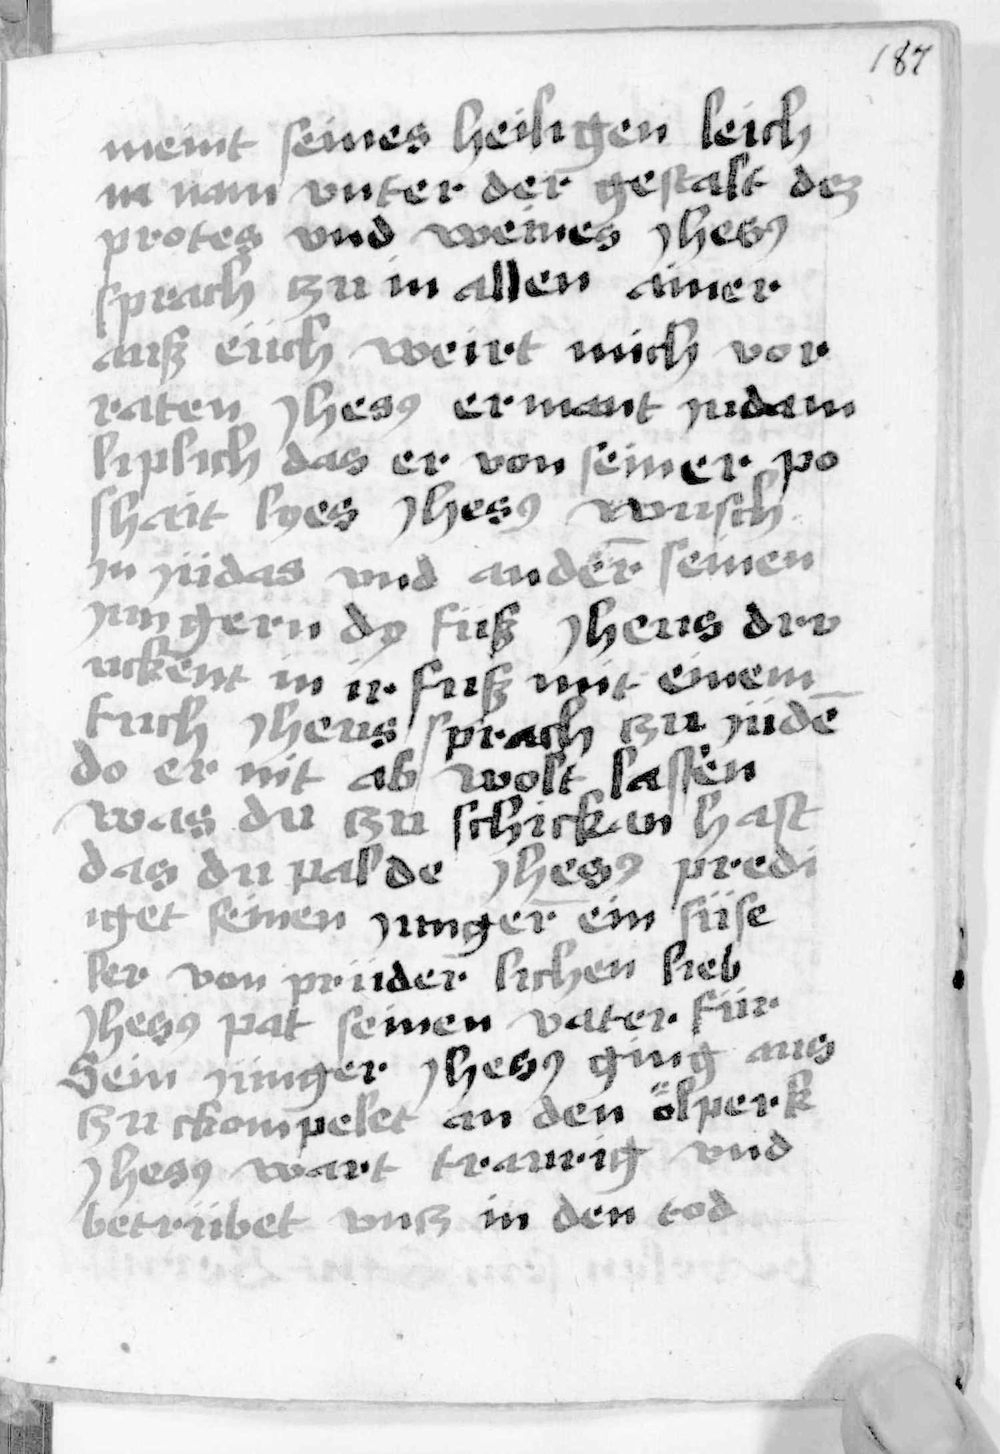 187
meint seines heiligen leich
na nam vnter der gestalt dez
protes vnd weines Jhesꝰ
sprach zu in allen ainer
auß eüch weirt mich vor
raten Jhesꝰ ermant judam
liplich das er von seiner po
shait lyes Jhesꝰ wusch
in jüdas vnd ander̄ seinen
jungern dy füß Jheus dru
uckent in ir fuß mit einem
tuch Jheus sprach zu jüdē
do er nit ab wolt lassen
was du zu schickan hast
das du palde Jhesꝰ predi
iget seinen junger̄ ein süse
ler von prüder lichen lieb
Jhesꝰ pat seinen vater für
Sein jünger Jhesꝰ ging aus
zu ckompelet an den ölperk
Jhesꝰ wart traurig vnd
betrübet vnz in den tod